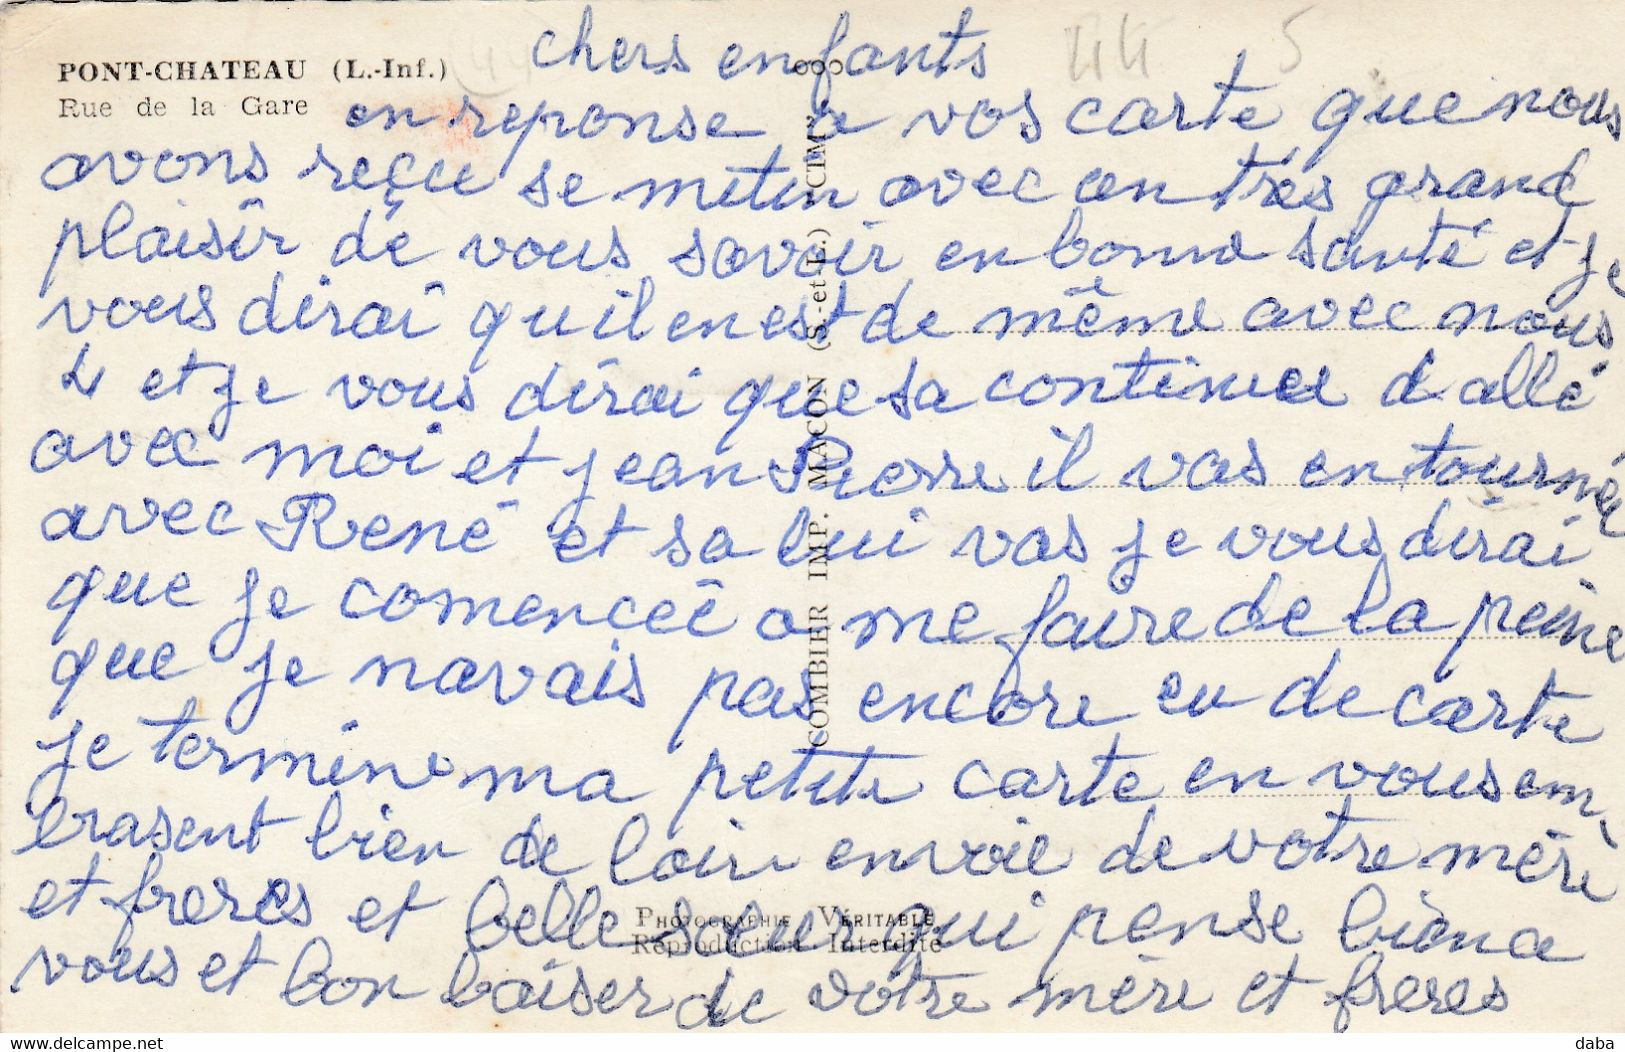 PONT-CHATEAU (L.-Inf.)
Rue de la Gare
44 5
chers enfants
en reponse a vos carte que nous
avons reçu se metin avec un très grand
plaisir de vous savoir en bonne santé et je
vous dirai qu il en est de même avec nous
4 et je vous dirai que sa continue d allé
avec moi et jean Pierre il vas en tourné
avec René et sa lui vas je vous dirai
que je comenceé a me faire de la peine
que je navais pas encore eu de carte
je termine ma petite carte en vous em
brasent bien de loin envoie de votre mère
et freres et belle soeur qui pense bien a
vous et bon baiser de votre mère et freres
COMBIER IMP. MACON (S.-et-L.) "CIM"
PHOTOGRAPHIE VÉRITABLE
Reproduction Interdite
delcampe.net
daba